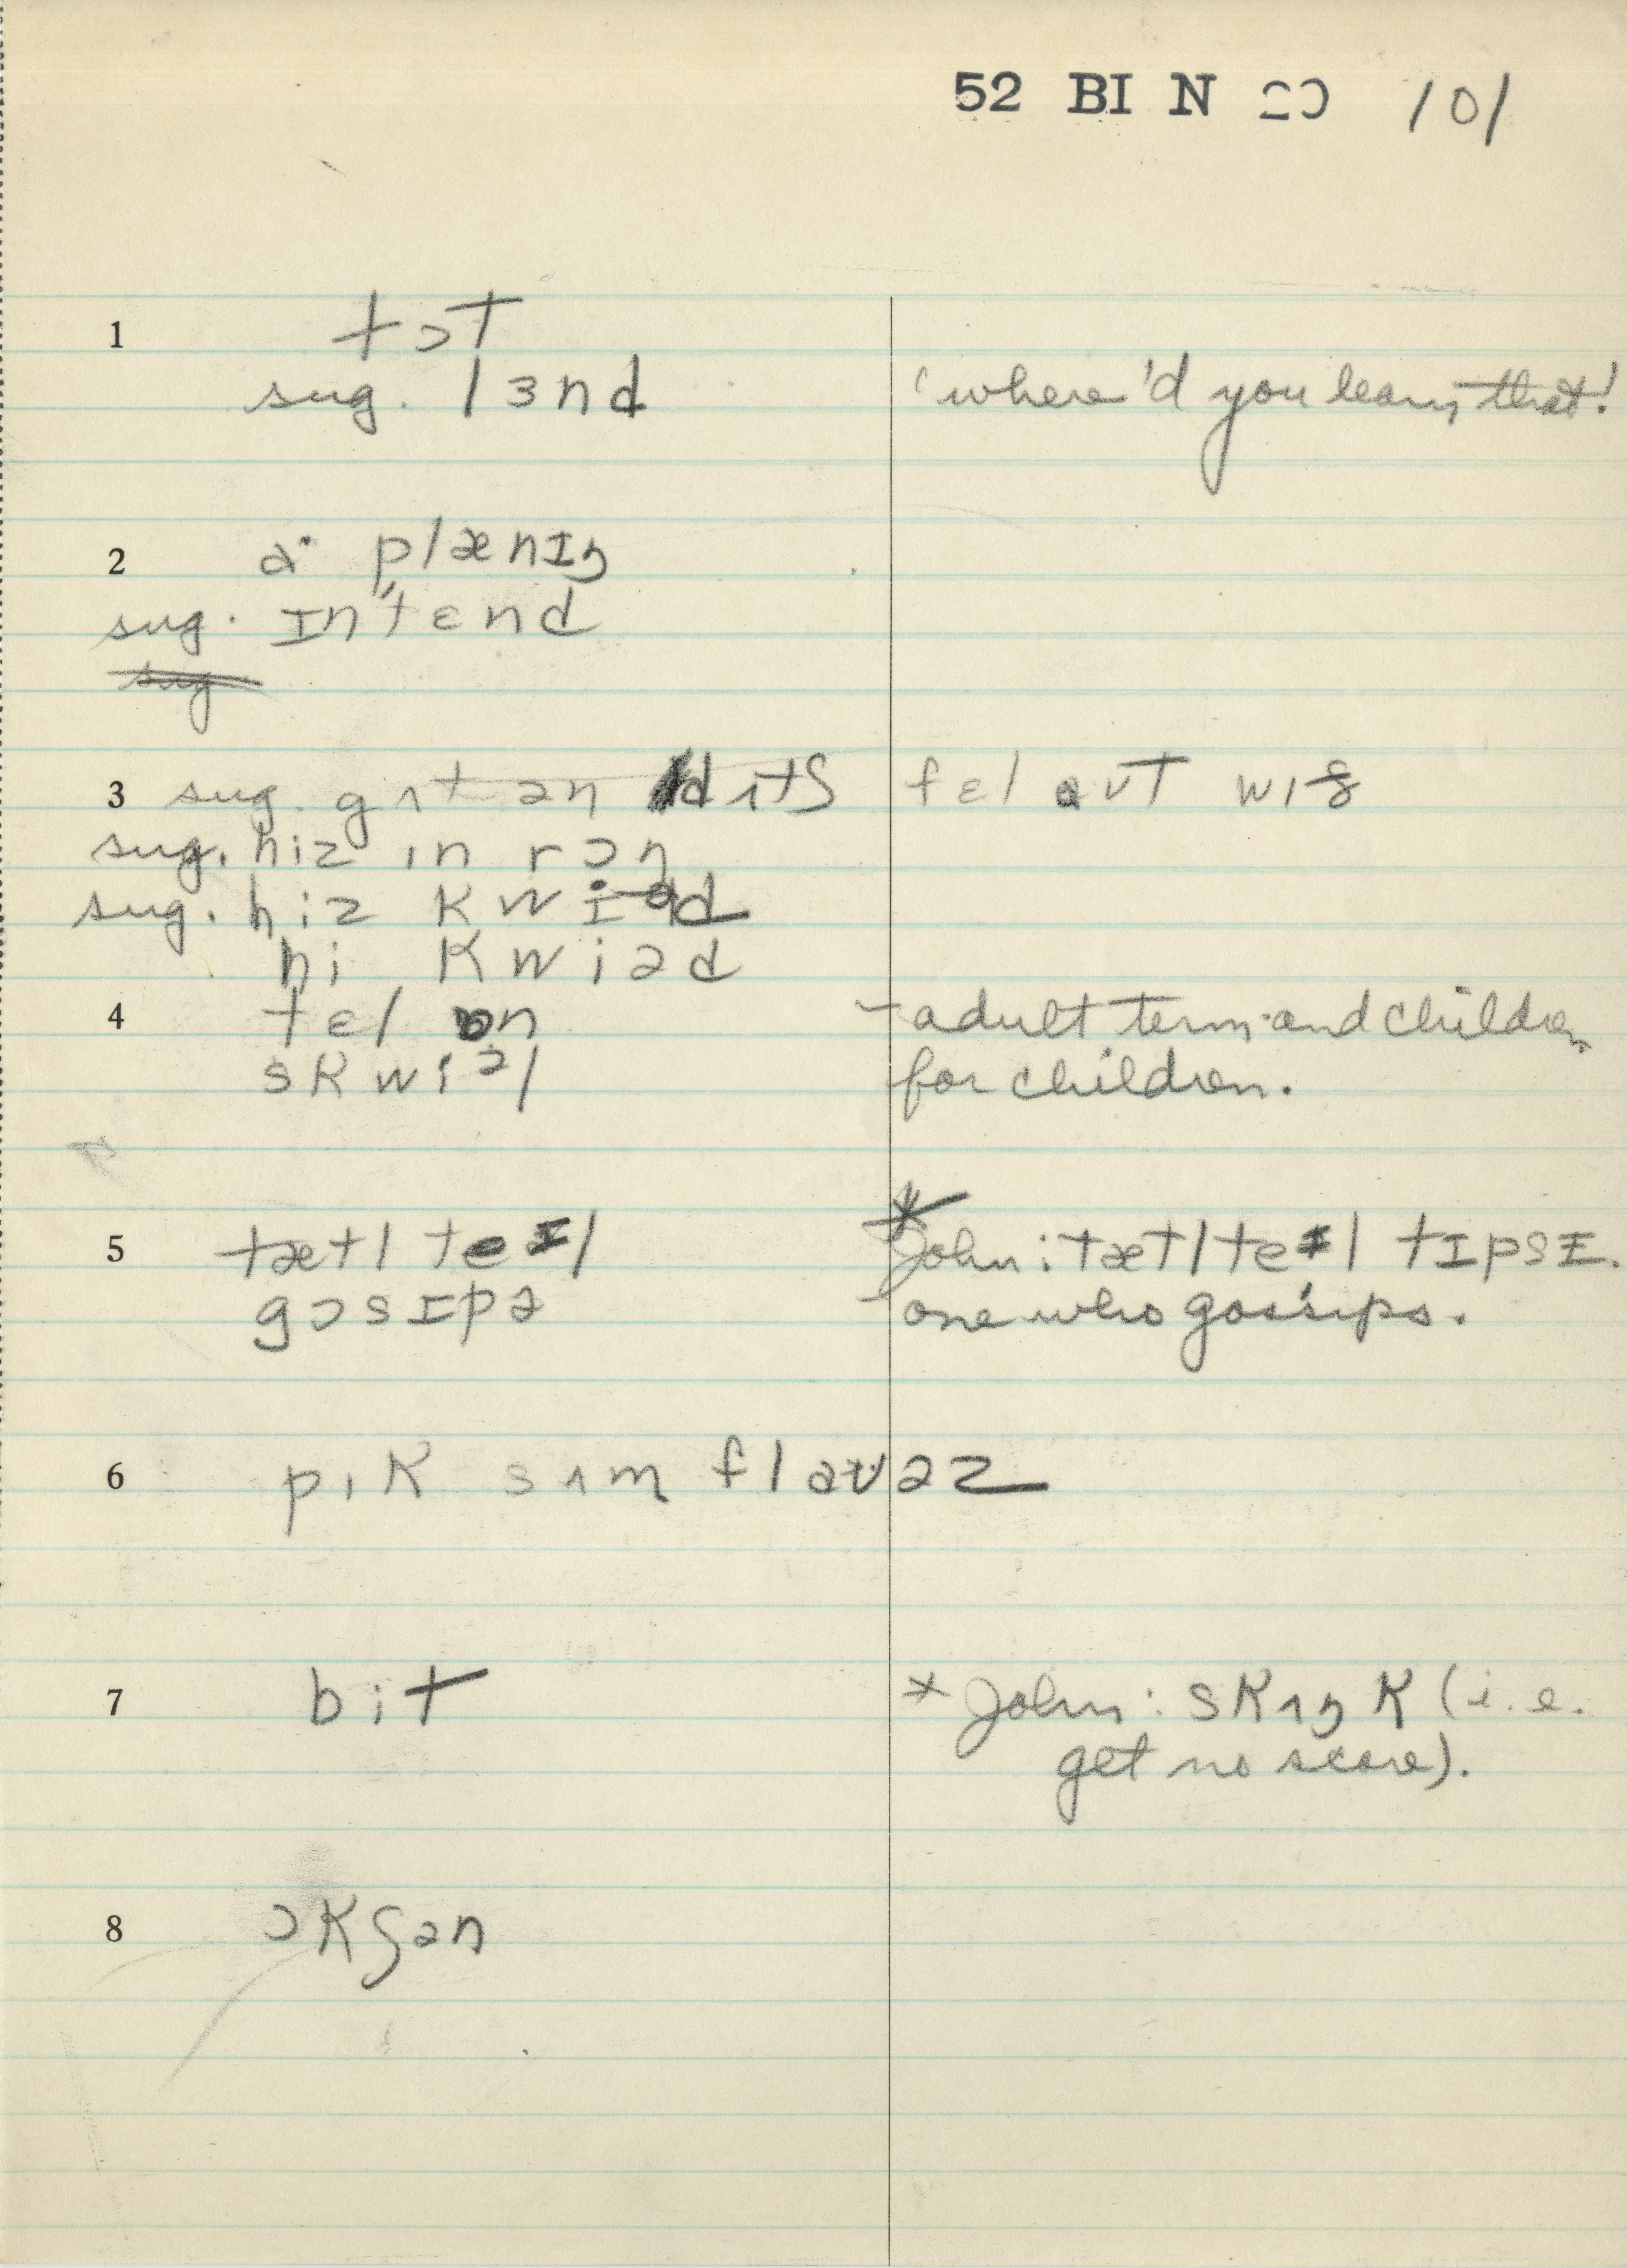 52 BI N 101
1 tɔt
sug. lɜnd 'where'd you learn that!
2 a· plænɪŋ
sug. ɪntɛnd
sug
3 sug. gʌt ən dɪtʃ fɛl aʊt wɪð
sug. hiz ɪn rɔŋ
sug. hiz kwiəd
hi kwiəd
4 tɛl ɒn – adult term and children
skwiəl for children.
5 tætl teɪl * John: tætlteɪl tɪpsɪ.
gɔsɪpə – one who gossips.
6 pɪk sʌm flaʊəz
7 bit * John: skʌŋk (i.e.
get no score).
8 ɔkʃən